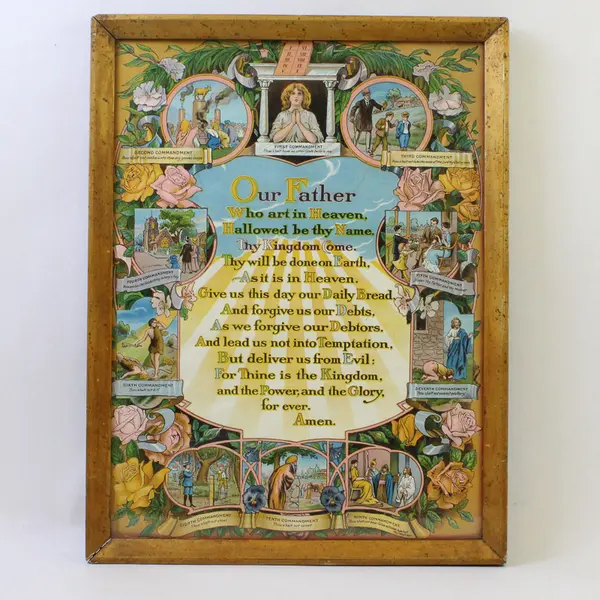 FIRST COMMANDMENT
SECOND COMMANDMENT
THIRD COMMANDMENT
Our Father
Who art in Heaven,
Hallowed be thy Name.
Thy Kingdom Come.
Thy will be done on Earth,
As it is in Heaven.
Give us this day our Daily Bread,
And forgive us our Debts,
As we forgive our Debtors.
And lead us not into Temptation,
But deliver us from Evil:
For Thine is the Kingdom,
and the Power, and the Glory,
for ever.
Amen.
FOURTH COMMANDMENT
FIFTH COMMANDMENT
SIXTH COMMANDMENT
SEVENTH COMMANDMENT
EIGHTH COMMANDMENT
TENTH COMMANDMENT
NINTH COMMANDMENT